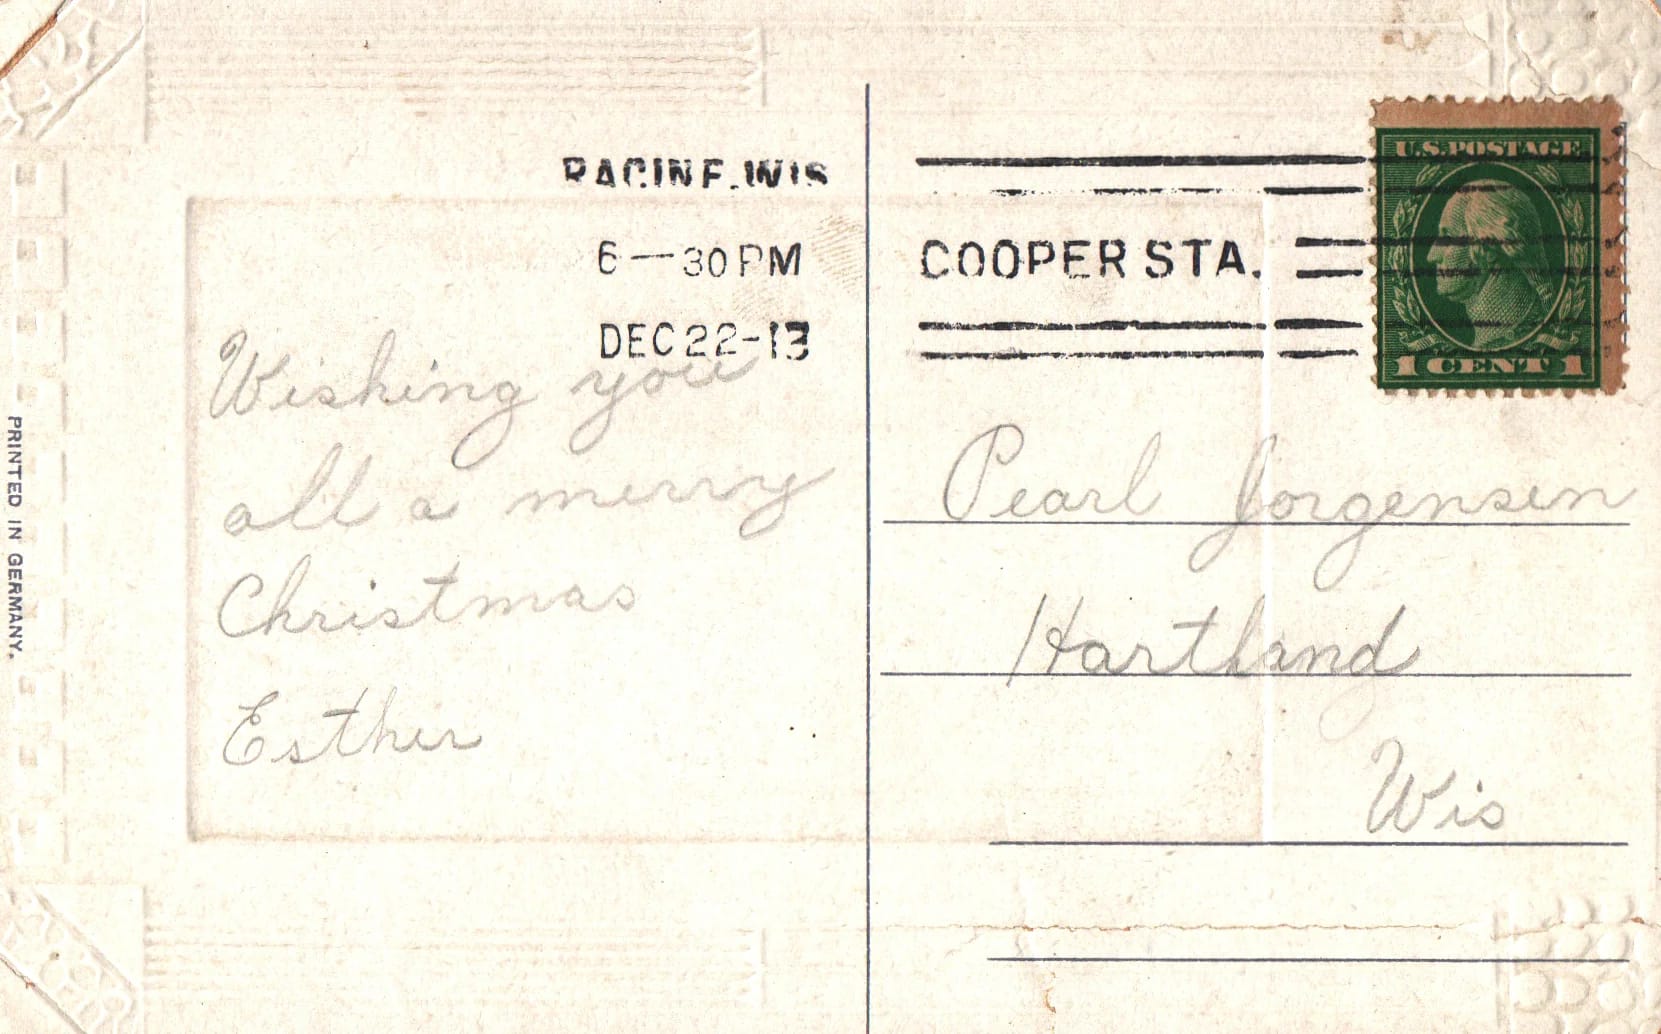 RACINE, WIS
6—30 PM
DEC 22-13
COOPER STA.
U.S. POSTAGE
1 CENT 1
Wishing you
all a merry
Christmas
Esther
Pearl Jorgensen
Hartland
Wis
PRINTED IN GERMANY.